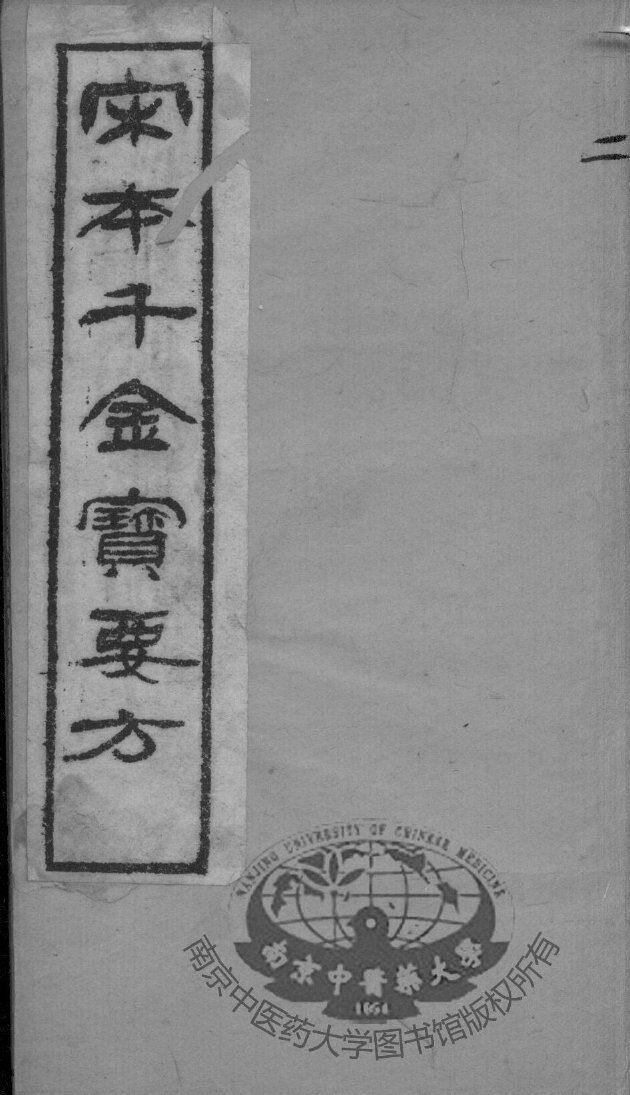 二
宋本千金寶要方
NANJING UNIVERSITY OF CHINESE MEDICINE
南京中醫藥大學
1954
南京中医药大学图书馆版权所有